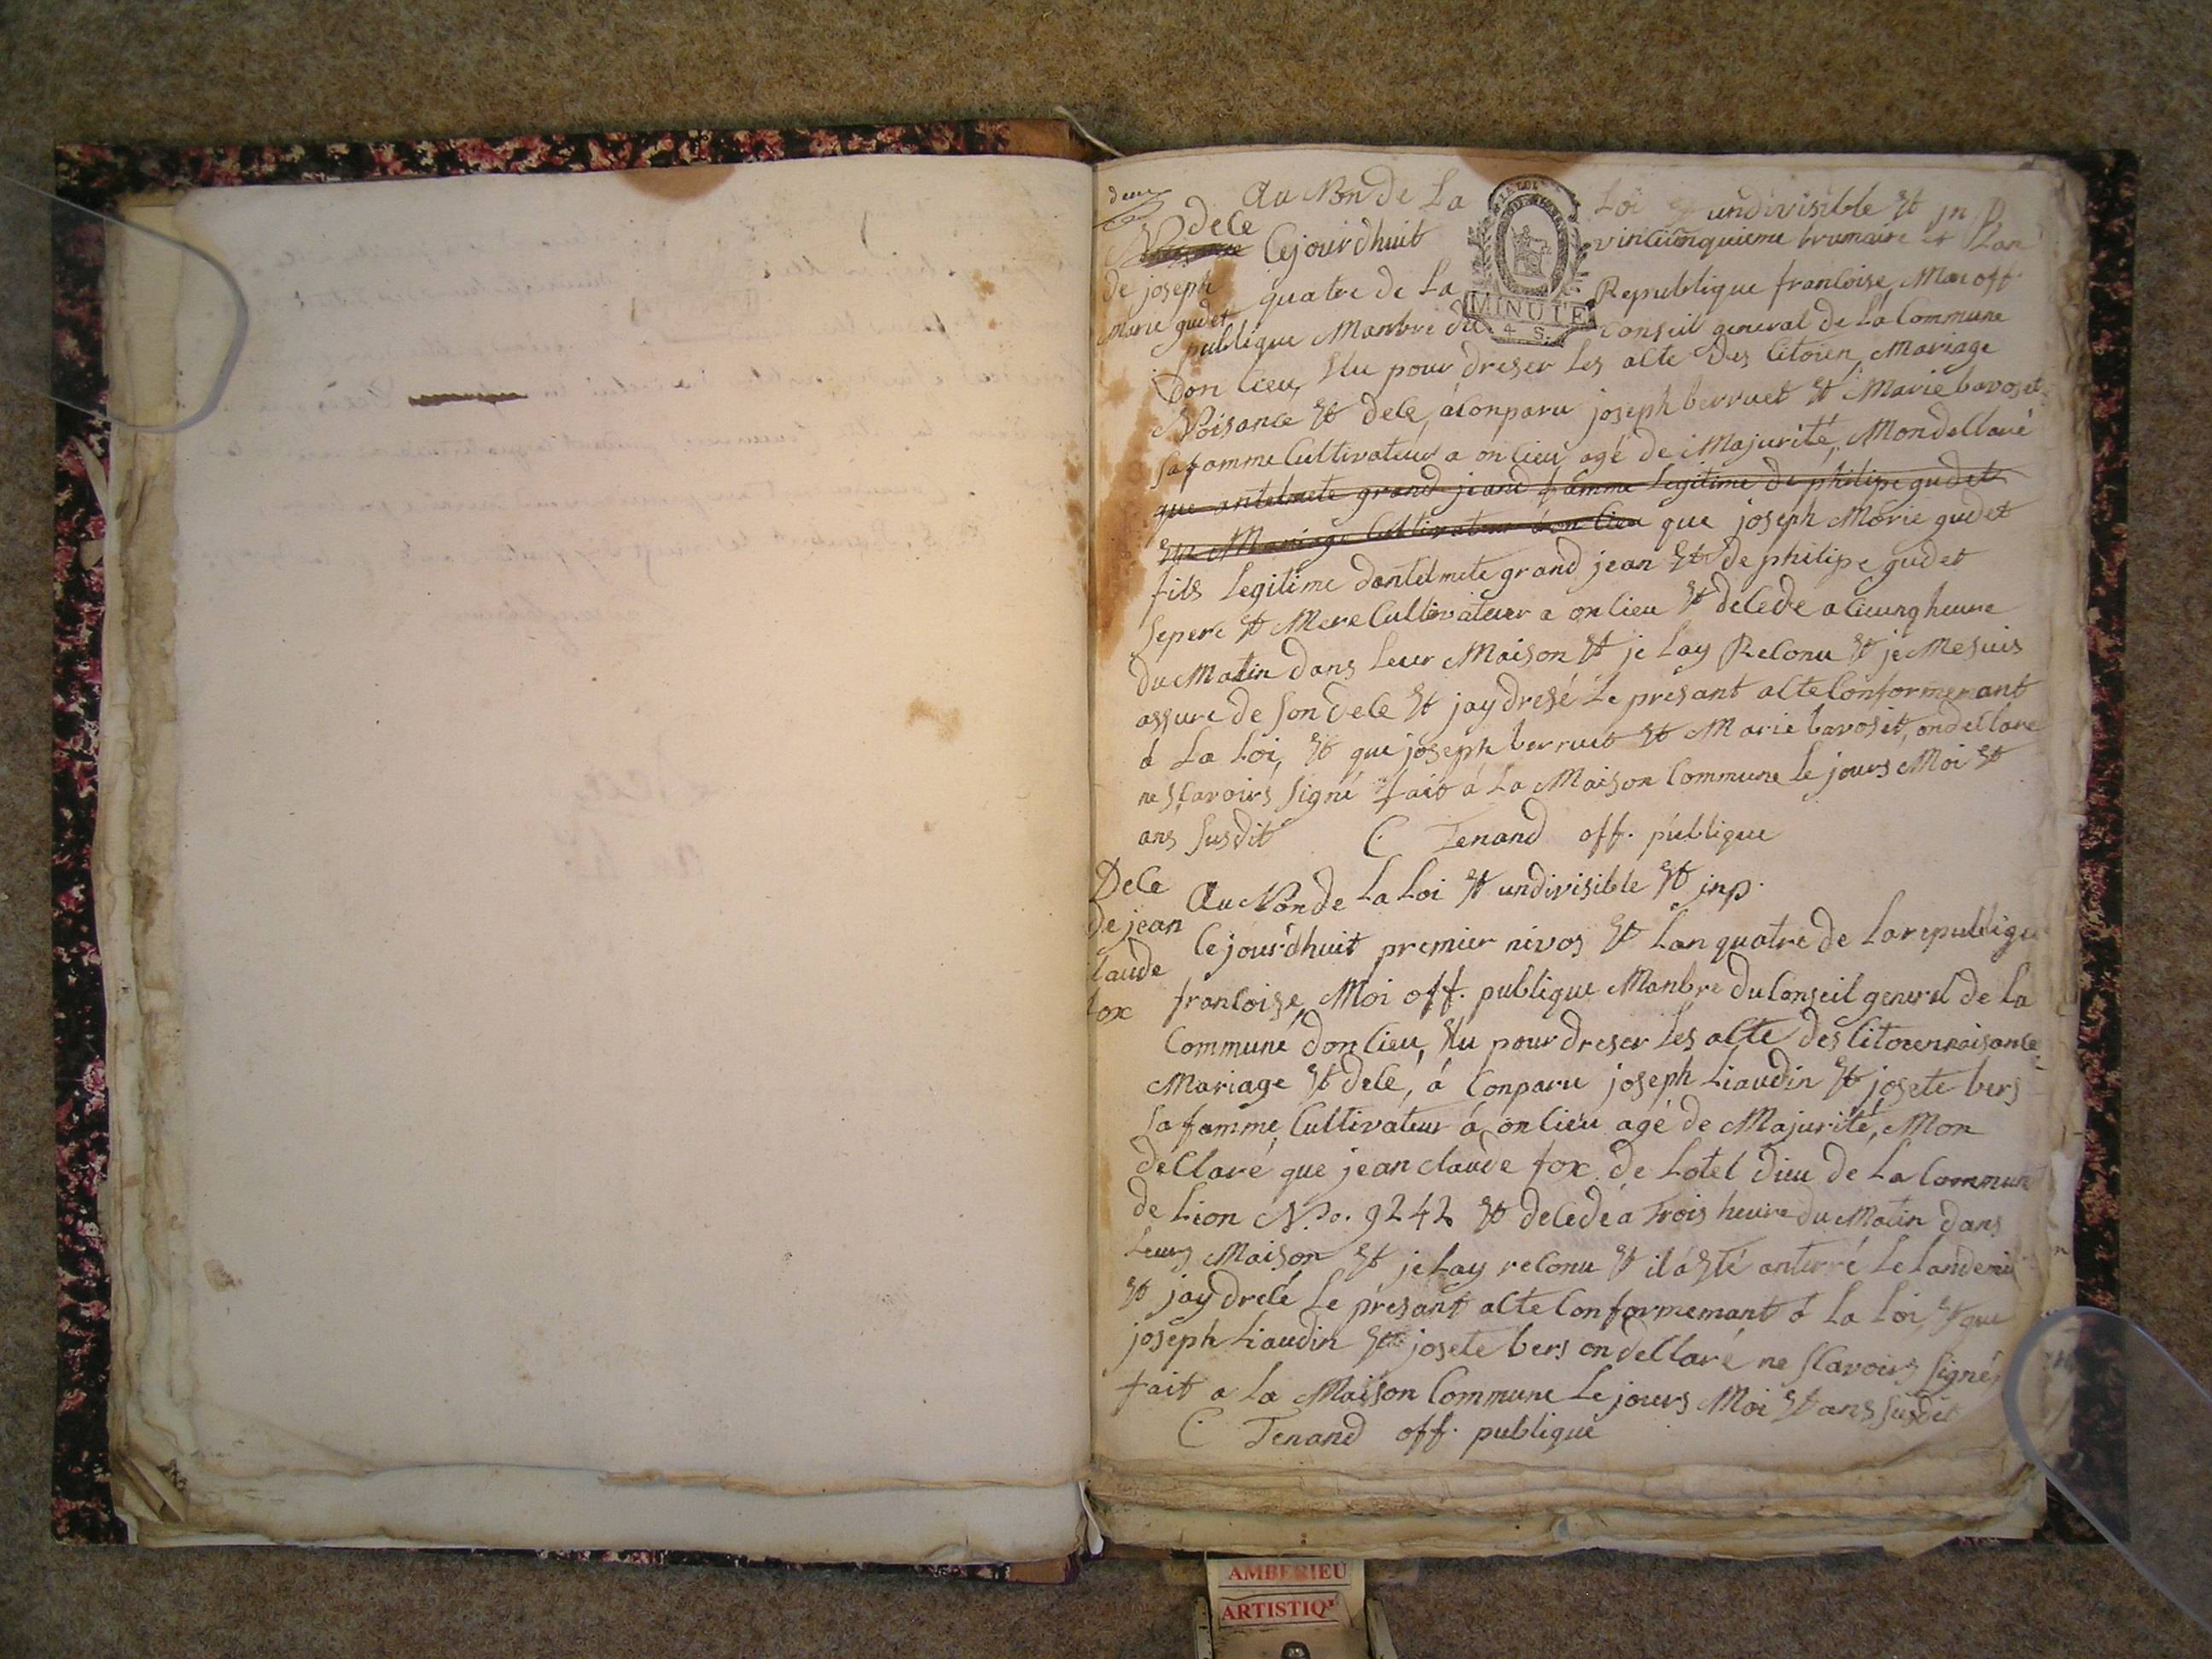 deux
Au Non de La Loi et undivisible et in p.
dele
Noisance
de joseph
marie gudet
Cejourdhuit vincinquieme brumaire et Lan
quatre de La Republique francoise, Moi off.
publique Manbre du Conseil general de La Commune
LA LOI
MINUTE
4 S.
Donlieu, Elu pour dreser Les acte des Citoien, Mariage
Noisance et dele, á Conparu joseph berruet et Marie bavoset
sa famme Cultivateur a onlieu agé de Majurité, Mon dellaré
que antelmete grand jeand famme Legitime de philipe gudet
et Mariage Cultivateur a onlieu que joseph Morie gudet
fils Legitime dantelmete grand jean et de philipe gudet
seperé et Mere Cultivateur a onlieu et delede a Cieunq heure
du Matin dans Leur Maison et je Lay Reconu et je Mesuis
assure de son dele et jay dresé Le présant alte Conformemant
á La Loi, et que joseph berruet et Marie bavosit, on dellare
ne sçavoirs signé fait á La Maison Commune Le jours Moi et
ans susdit C. Tenand off. publique
Dele
de jean
Claude
fox
Au Non de La Loi et undivisible et inp.
Cejourdhuit premier nivos et Lan quatre de La republique
francoise, Moi off. publique Manbre du Conseil general de La
Commune donlieu, Elu pour dreser Les alte des Citoien noisance
Mariage et dele, á Conparu joseph Liaudin et josete bers
sa famme Cultivateur á onlieu agé de Majurité, Mon
dellaré que jean claude fox de Lotel dieu de La Commune
de Lion N.o. 9242 et deledé a Trois heure du Matin dans
Leurs Maison et je Lay reconu et il á été anterré Le Landemi
et jay dresé Le présant alte Conformemant á La Loi, et que
joseph Liaudin et josete bers on dellaré ne sçavoirs signés
fait a La Maison Commune Le jours Moi et ans susdit
C. Tenand off. publique
AMBERIEU
ARTISTIQ